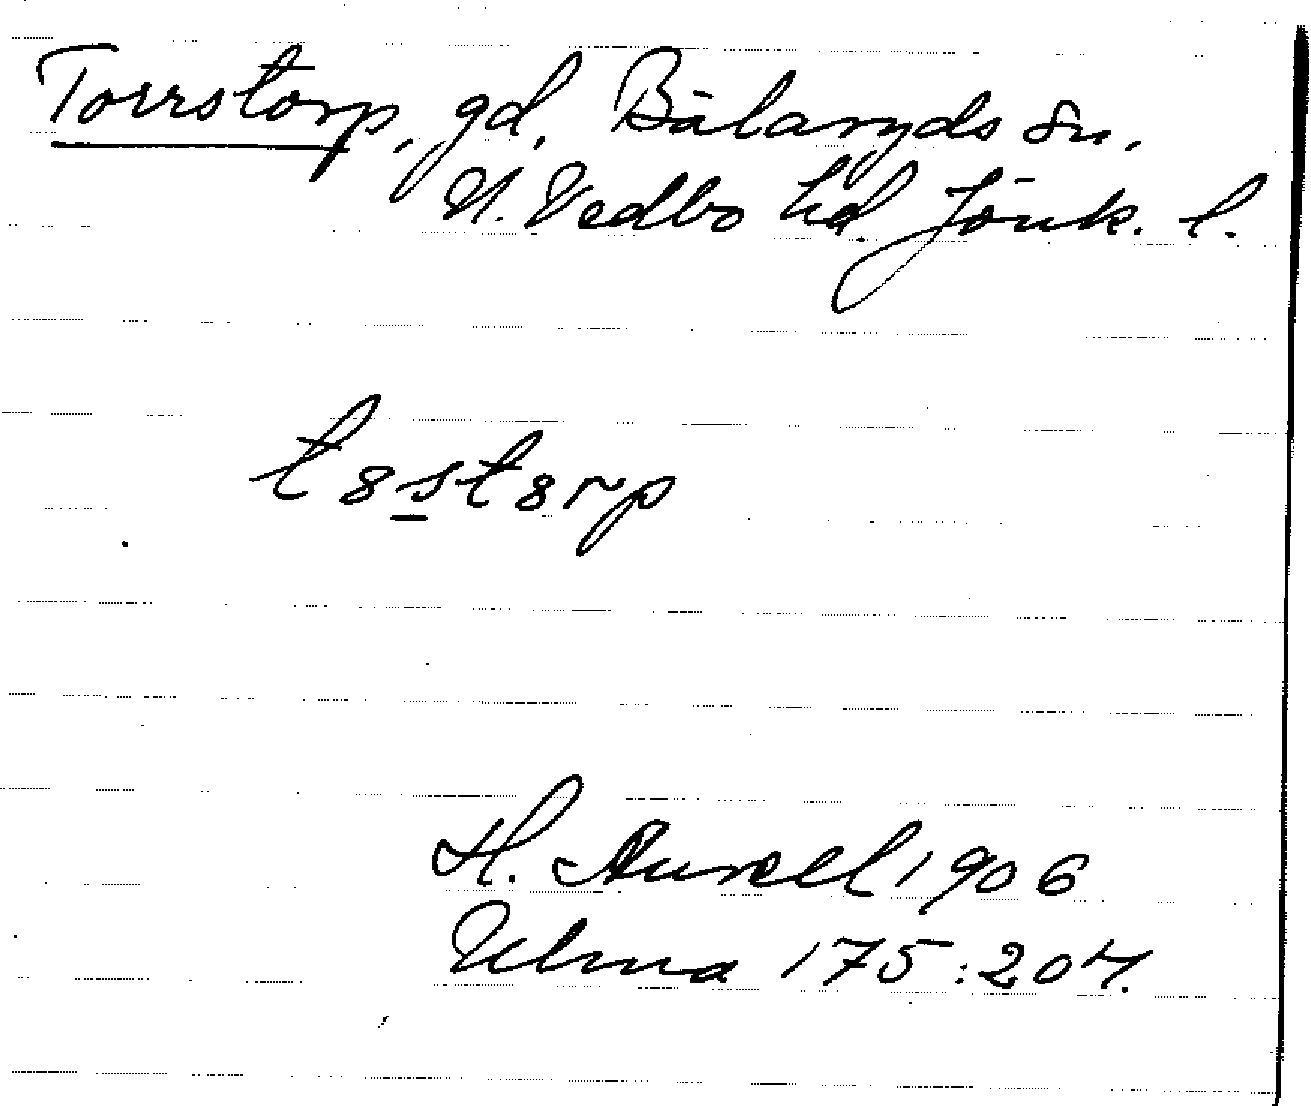 Torrstorp, gd, Bälaryds sn,
N. Vedbo hd. Jönk. l.
t8st8rp
H. Aurell 1906
Ulma 175:204.